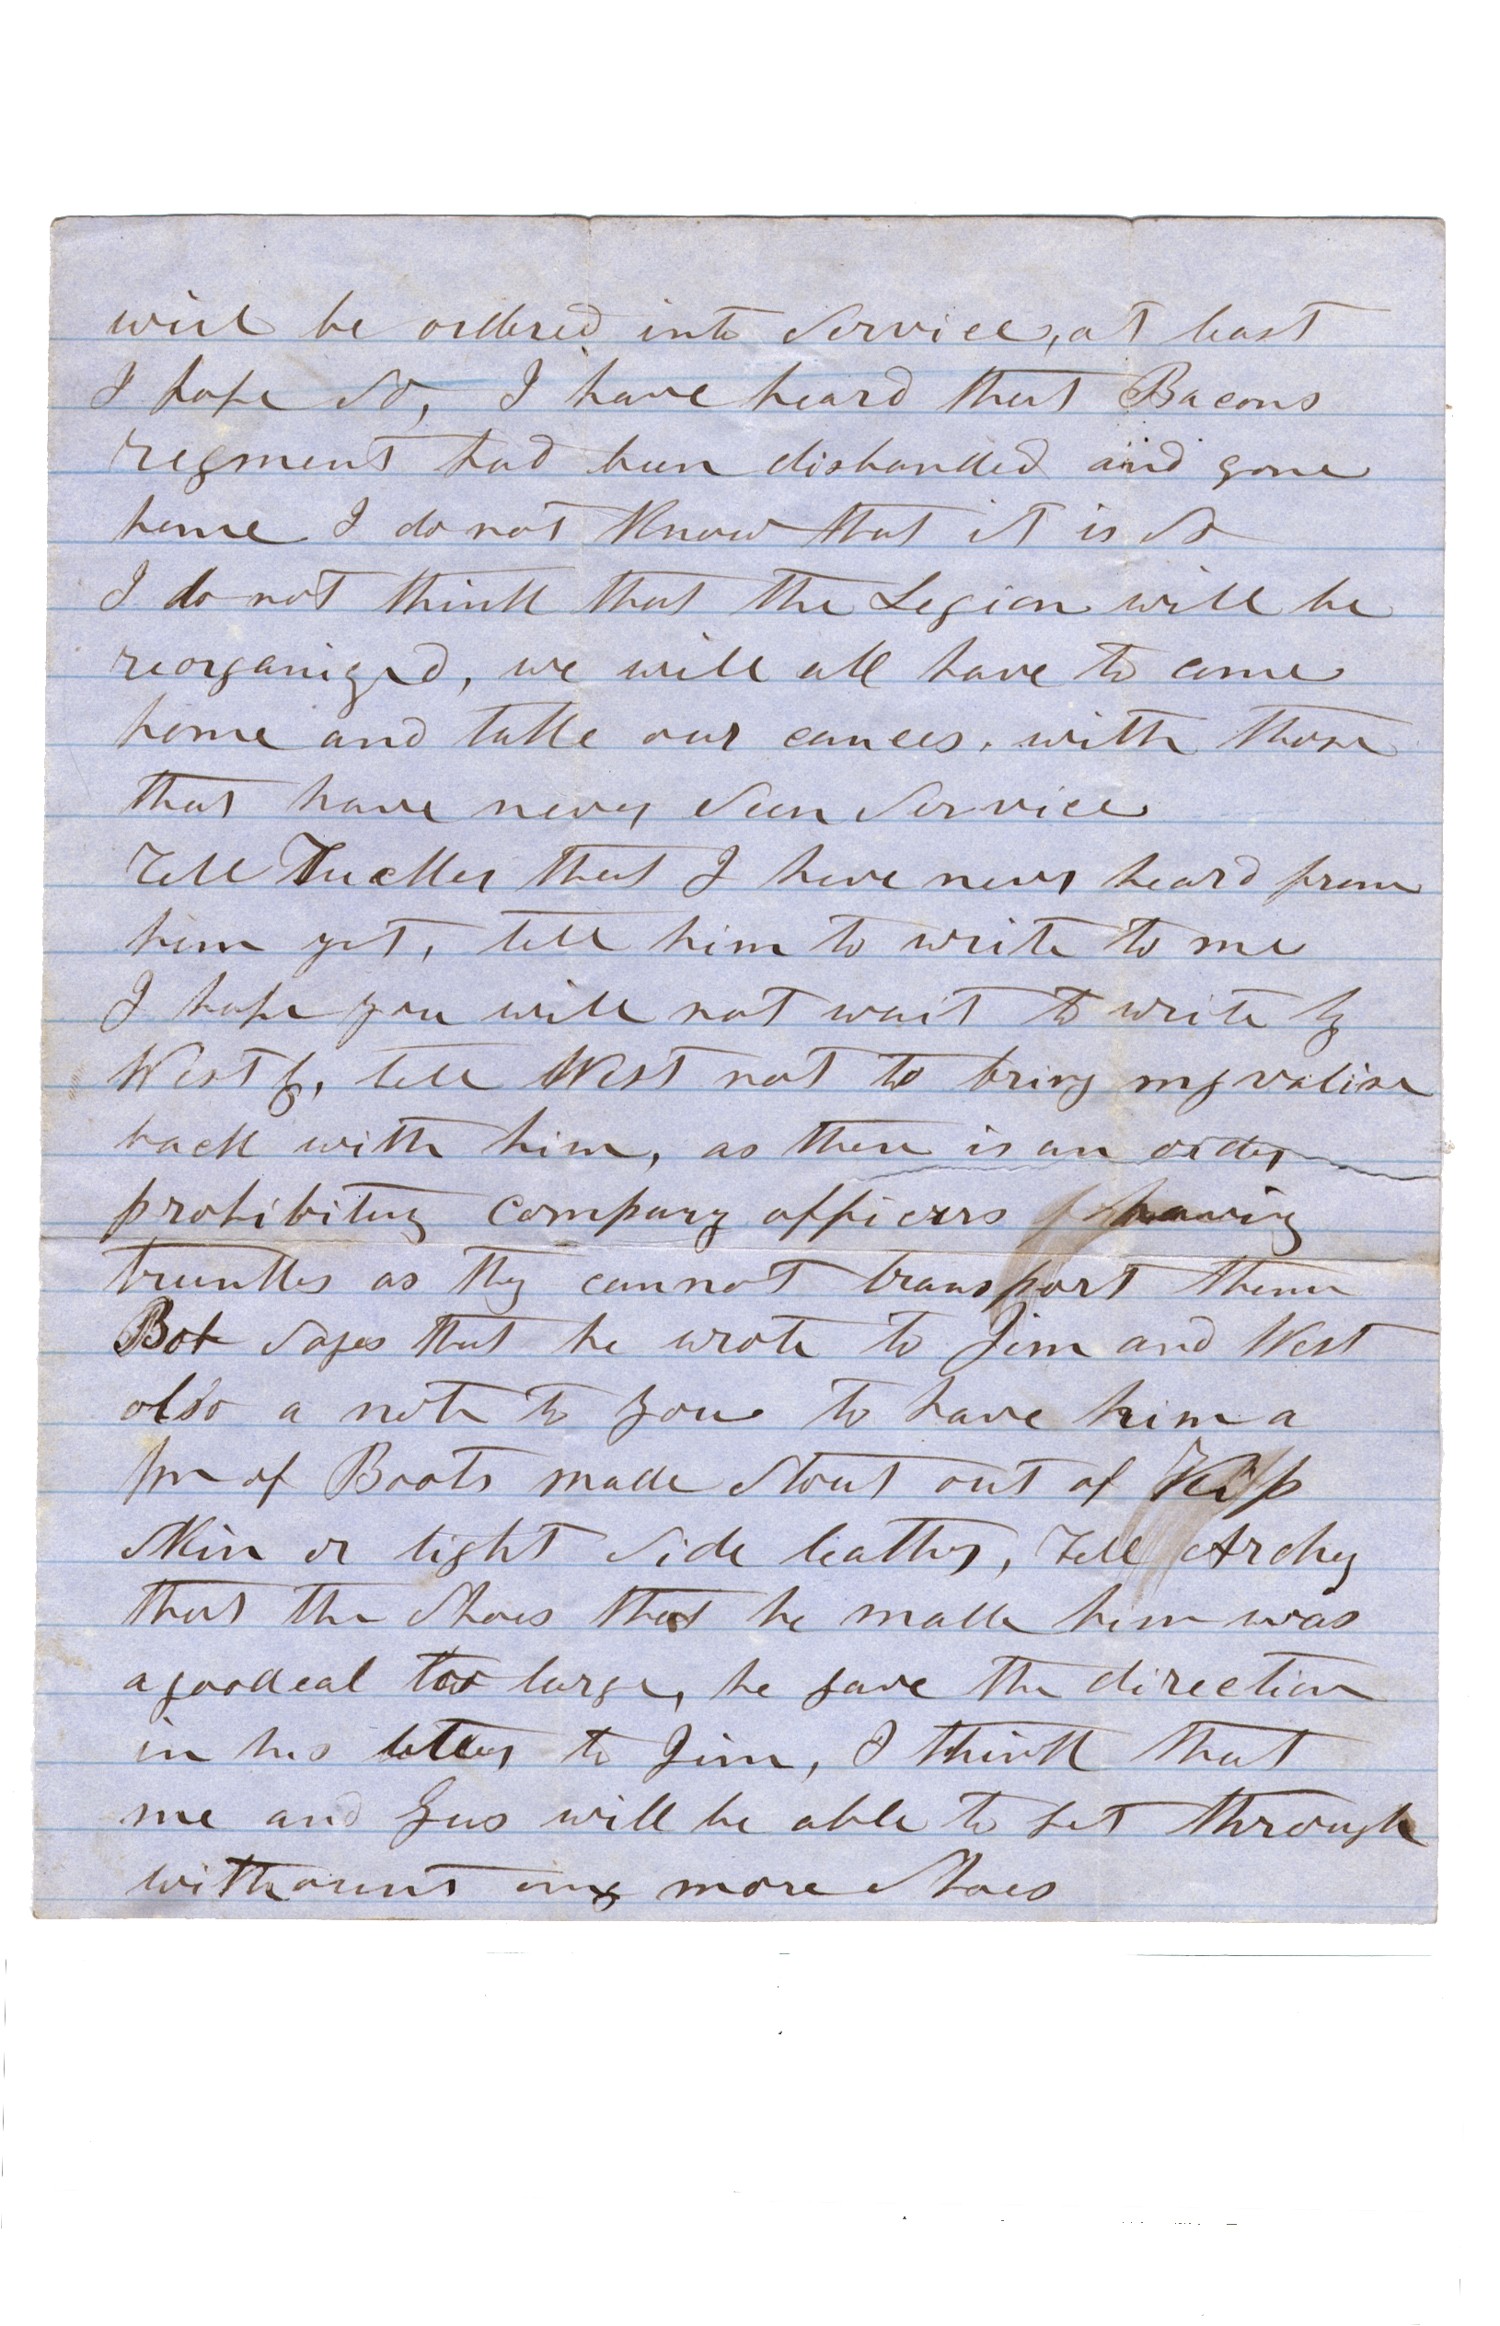 will be ordered into Service, at least
I hope so, I have heard that Bacons
regment had been disbanded and gone
home I do not Know that it is so
I do not think that the Legion will be
reorganized, we will all have to come
home and take our cances. with those
that have never seen Service
Tell Tucker that I have never heard from
him yet, tell him to write to me
I hope you will not wait to write by
West, tell West not to bring my valise
back with him, as there is an order
prohibiting company officers having
trunkes as they cannot transport them
Bob says that he wrote to Jim and West
also a note to you to have him a
pr of Boots made stout out of Kip
skin or light side leather, Tell Archy
that the shoes that he made him was
a goodeal too large, he gave the direction
in his letter to Jim, I think that
me and Gus will be able to get through
without any more shoes